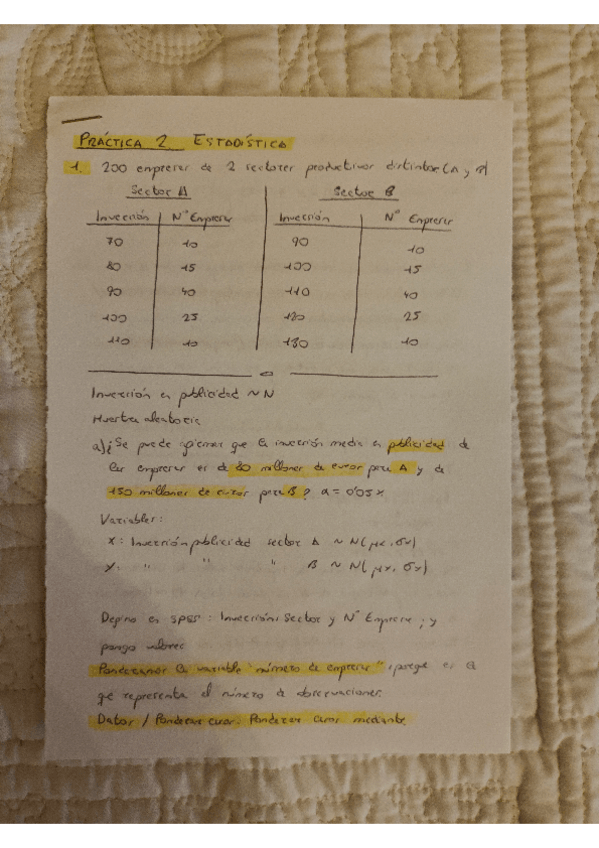 PRÁCTICA 2 ESTADÍSTICA
1. 200 empresas de 2 sectores productivos distintos (A y B)
Sector A Sector B
Inversión Nº Empresas Inversión Nº Empresas
70 10 90 10
80 15 100 15
90 40 110 40
100 25 120 25
110 10 130 10
Inversión en publicidad ~ N
Muestra aleatoria
a) ¿Se puede afirmar que la inversión media en publicidad de
las empresas es de 80 millones de euros para A y de
150 millones de euros para B? α = 0'05
Variables:
X: Inversión publicidad sector A ~ N(μx, σx)
Y: " " " B ~ N(μx, σx)
Defino en SPSS: Inversión; Sector y Nº Empresas; y
pongo valores
Ponderamos la variable "número de empresas", porque es la
que representa el número de observaciones.
Datos / Ponderar casos. Ponderar casos mediante.